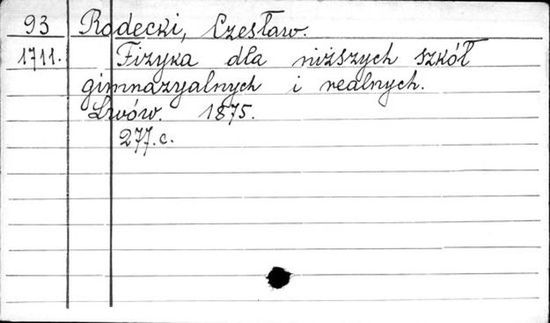 93 Rodecki, Czesław.
1711. Fizyka dla niższych szkół
gimnazyalnych i realnych.
Lwów. 1875.
277.c.